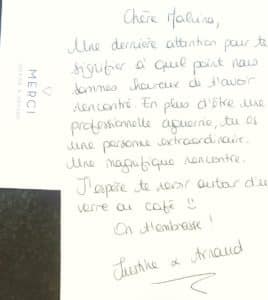 MERCI
Chère Maluna,
Une dernière attention pour te
signifier à quel point nous
sommes heureux de t'avoir
rencontré. En plus d'être une
professionnelle aguerrie, tu es
une personne extraordinaire.
Une magnifique rencontre.
J'espère te revoir autour d'un
verre ou café
On t'embrasse !
Justine & Arnaud